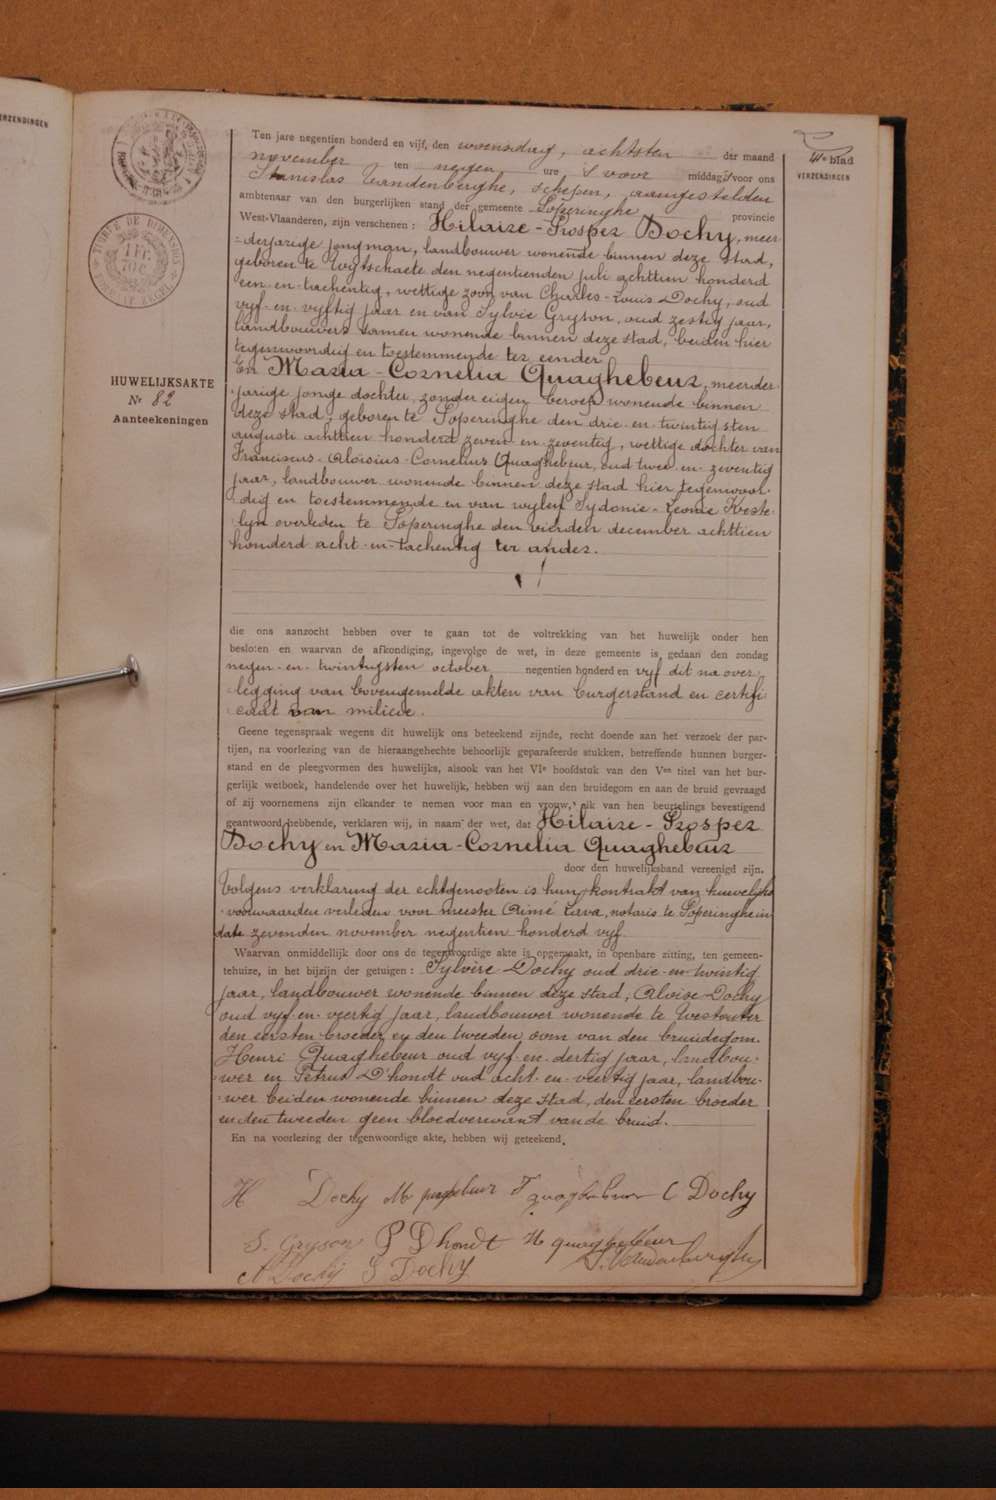 VERZENDINGEN
TIMBRE DE DIMENSION
1 FR.
HUWELIJKSAKTE
Nr 82
Aanteekeningen
41e blad
VERZENDINGEN
Ten jare negentien honderd en vijf, den woensdag, achtsten der maand
november ten negen ure 's voor middags voor ons
Stanislas Vandenberghe, schepen, aangestelden
ambtenaar van den burgerlijken stand der gemeente Poperinghe provincie
West-Vlaanderen, zijn verschenen : Hilaire-Prosper Dochy, meer
=derjarige jongman, landbouwer wonende binnen deze stad,
geboren te Wytschaete den negentienden juli achttien honderd
een-en-tachentig, wettige zoon van Charles-Louis Dochy, oud
vyf-en-vyftig jaar en van Sylvie Gryson, oud zestig jaar,
landbouwers samen wonende binnen deze stad, beiden hier
tegenwoordig en toestemmende ter eender
En Maria-Cornelia Quaghebeur, meerder-
-jarige jonge dochter, zonder eigen beroep wonende binnen
deze stad, geboren te Poperinghe den drie-en-twintigsten
augusti achttien honderd zeven-en-zeventig, wettige dochter van
Franciscus-Aloisius-Cornelius Quaghebeur, oud twee-en-zeventig
jaar, landbouwer wonende binnen deze stad hier tegenwoor-
-dig en toestemmende en van wylen Sydonie-Leonie Keste-
-lyn overleden te Poperinghe den vierden december achttien
honderd acht-en-tachentig ter ander.
die ons aanzocht hebben over te gaan tot de voltrekking van het huwelijk onder hen
besloten en waarvan de afkondiging, ingevolge de wet, in deze gemeente is gedaan den zondag
negen-en-twintigsten october negentien honderd en vyf dit na over-
-legging van bovengemelde akten van burgerstand en certifi-
-caat van milicie.
Geene tegenspraak wegens dit huwelijk ons beteekend zijnde, recht doende aan het verzoek der par-
tijen, na voorlezing van de hieraangehechte behoorlijk geparafeerde stukken, betreffende hunnen burger-
stand en de pleegvormen des huwelijks, alsook van het VIe hoofdstuk van den Ven titel van het bur-
gerlijk wetboek, handelende over het huwelijk, hebben wij aan den bruidegom en aan de bruid gevraagd
of zij voornemens zijn elkander te nemen voor man en vrouw, elk van hen beurtelings bevestigend
geantwoord hebbende, verklaren wij, in naam der wet, dat Hilaire-Prosper
Dochy en Maria-Cornelia Quaghebeur
door den huwelijksband vereenigd zijn.
Volgens verklaring der echtgenooten is hun kontrakt van huwelyks
-voorwaarden verleden voor meester Aimé Lava, notaris te Poperinghe in
date zevenden november negentien honderd vyf.
Waarvan onmiddelijk door ons de tegenwoordige akte is opgemaakt, in openbare zitting, ten gemeen-
tehuize, in het bijzijn der getuigen : Sylvère Dochy oud drie-en-twintig
jaar, landbouwer wonende binnen deze stad, Aloise Dochy
oud vyf-en-veertig jaar, landbouwer wonende te Westouter
den eersten broeder en den tweeden oom van den bruidegom.
Henri Quaghebeur oud vyf-en-dertig jaar, landbou-
-wer en Petrus D'hondt oud acht-en-veertig jaar, landbou-
-wer beiden wonende binnen deze stad, den eersten broeder
en den tweeden geen bloedverwant van de bruid.
En na voorlezing der tegenwoordige akte, hebben wij geteekend.
H Dochy M quaghebeur F quaghebeur C Dochy
S. Gryson P Dhondt H quaghebeur
S. Vandenberghe
A Dochy S Dochy